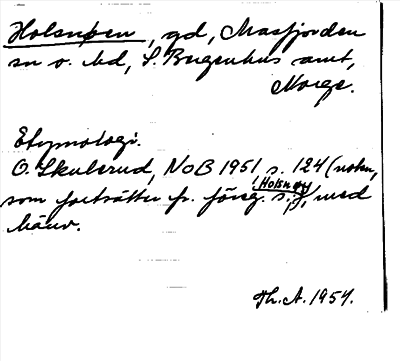 Holsnøen, gd, Masfjorden
sn o. hd, S. Bergenhus amt,
Norge.
Etymologi.
O. Skulerud, NoB 1951 s. 124 (noten,
som fortsätter fr. föreg. s.), med
Holsnøy
hänv.
Th. A. 1954.